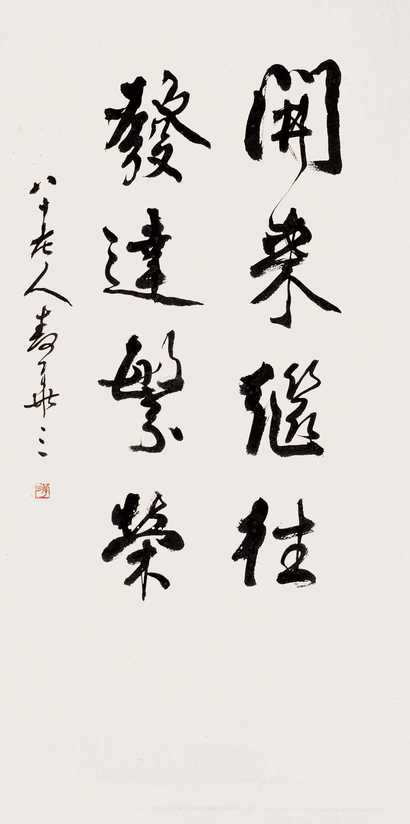 開來繼往
發達繁榮
八十老人